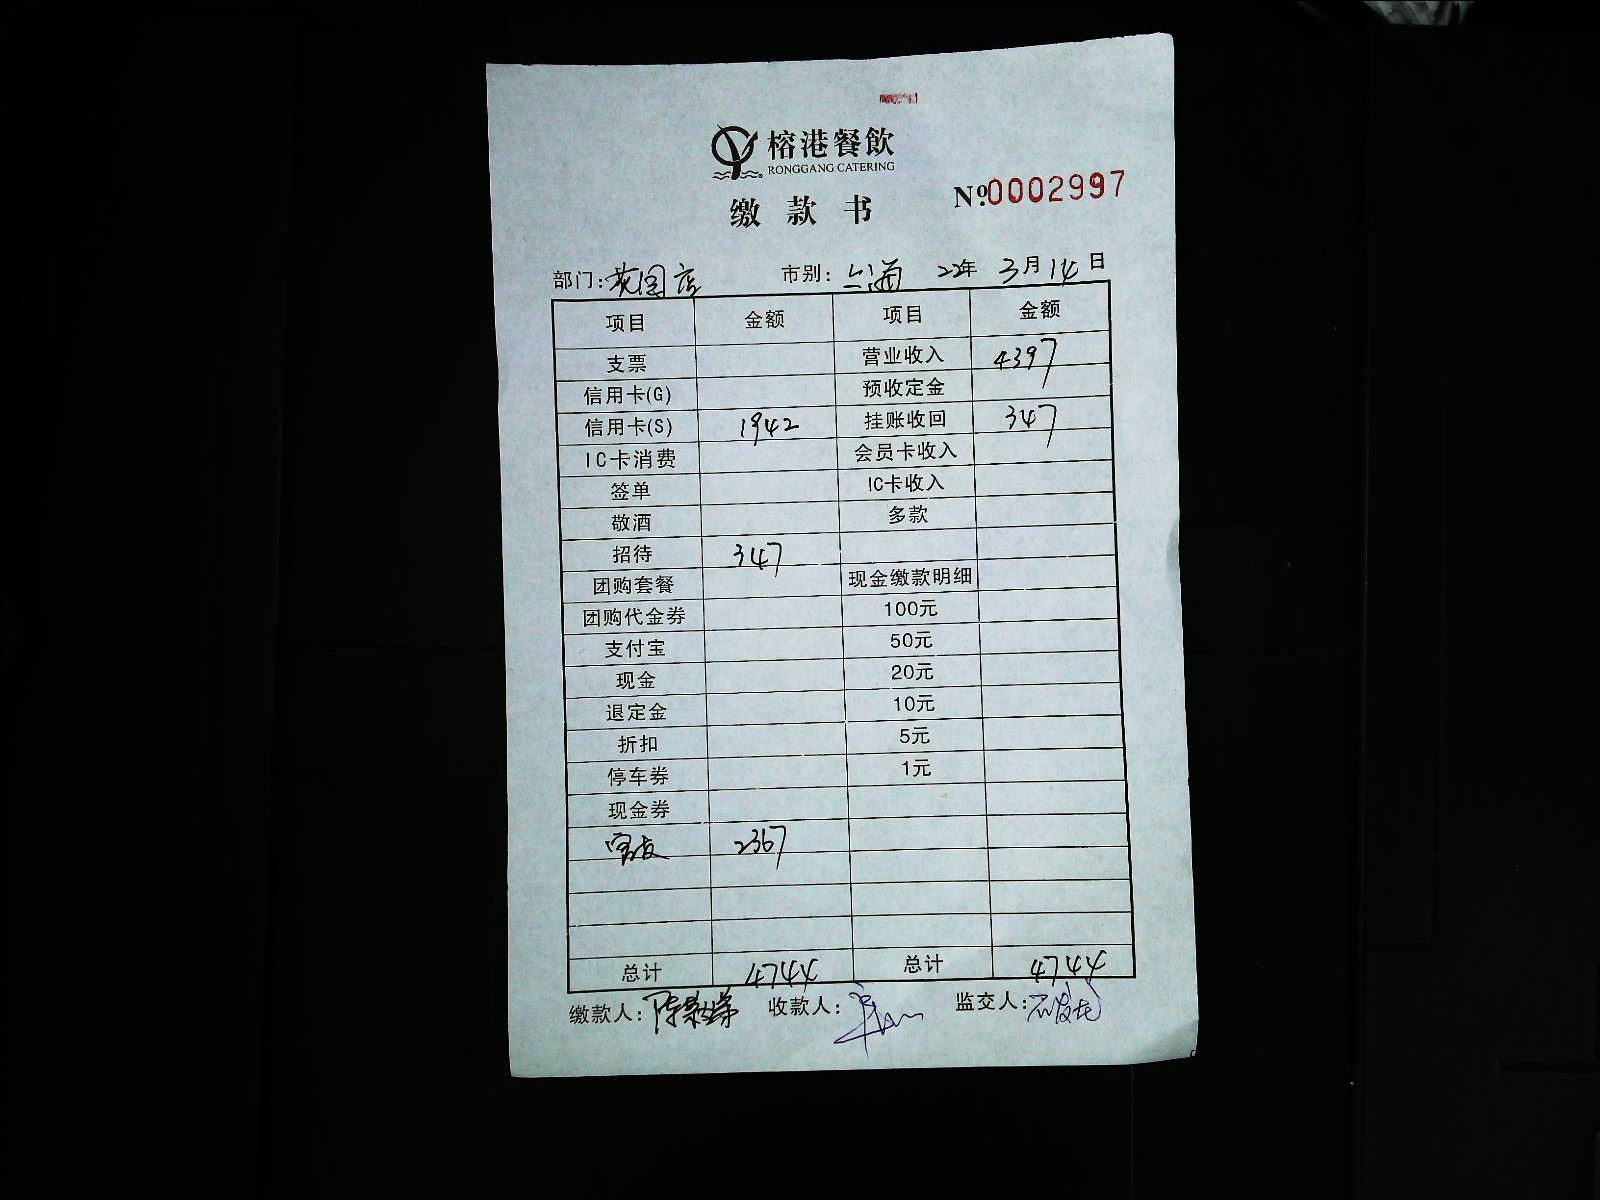 榕港餐飲
RONGGANG CATERING
缴款书
№:0002997
部门: 花园店 市别: 22年3月14日
项目 金额 项目 金额
支票 营业收入 4397
信用卡(G) 预收定金
信用卡(S) 1942 挂账收回 347
IC卡消费 会员卡收入
签单 IC卡收入
敬酒 多款
招待 347
团购套餐 现金缴款明细
团购代金券 100元
支付宝 50元
现金 20元
退定金 10元
折扣 5元
停车券 1元
现金券
2367
总计 4744 总计 4744
缴款人: 收款人: 监交人: